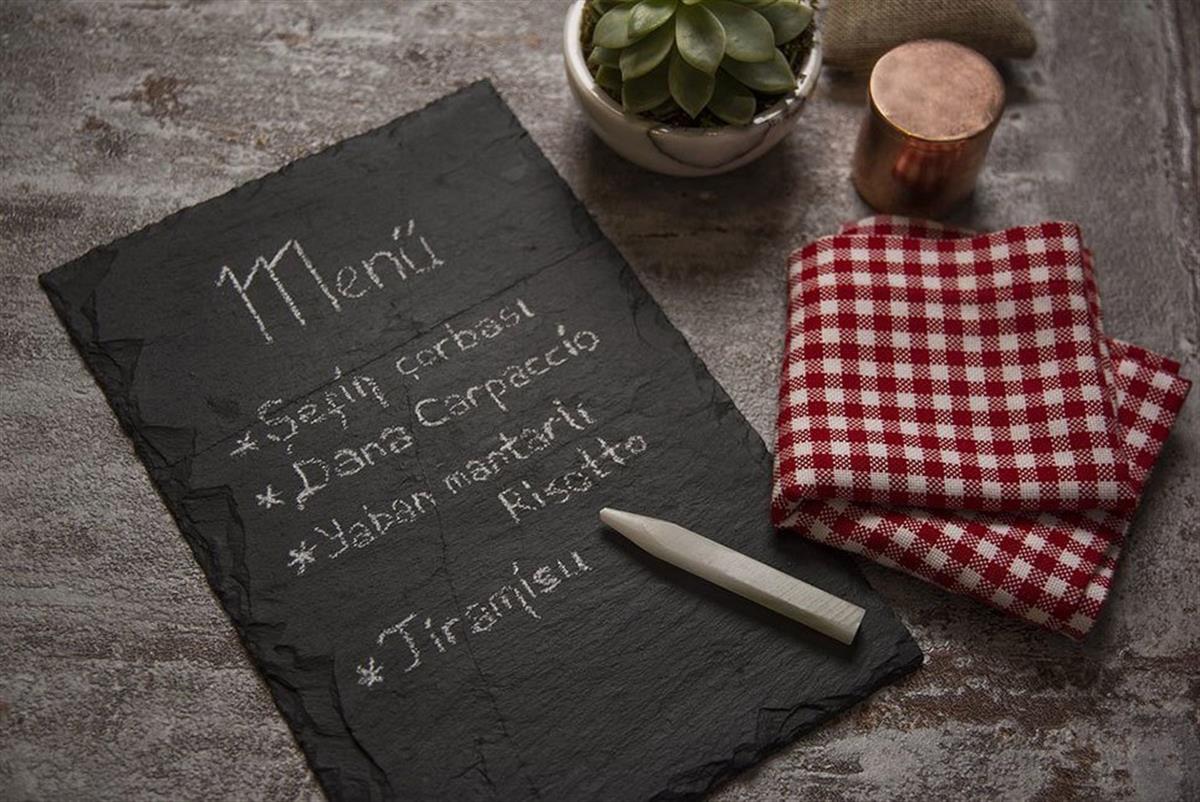 Menü
* Şefin çorbası
* Dana Carpaccio
* Yaban mantarlı
Risotto
* Tiramisu